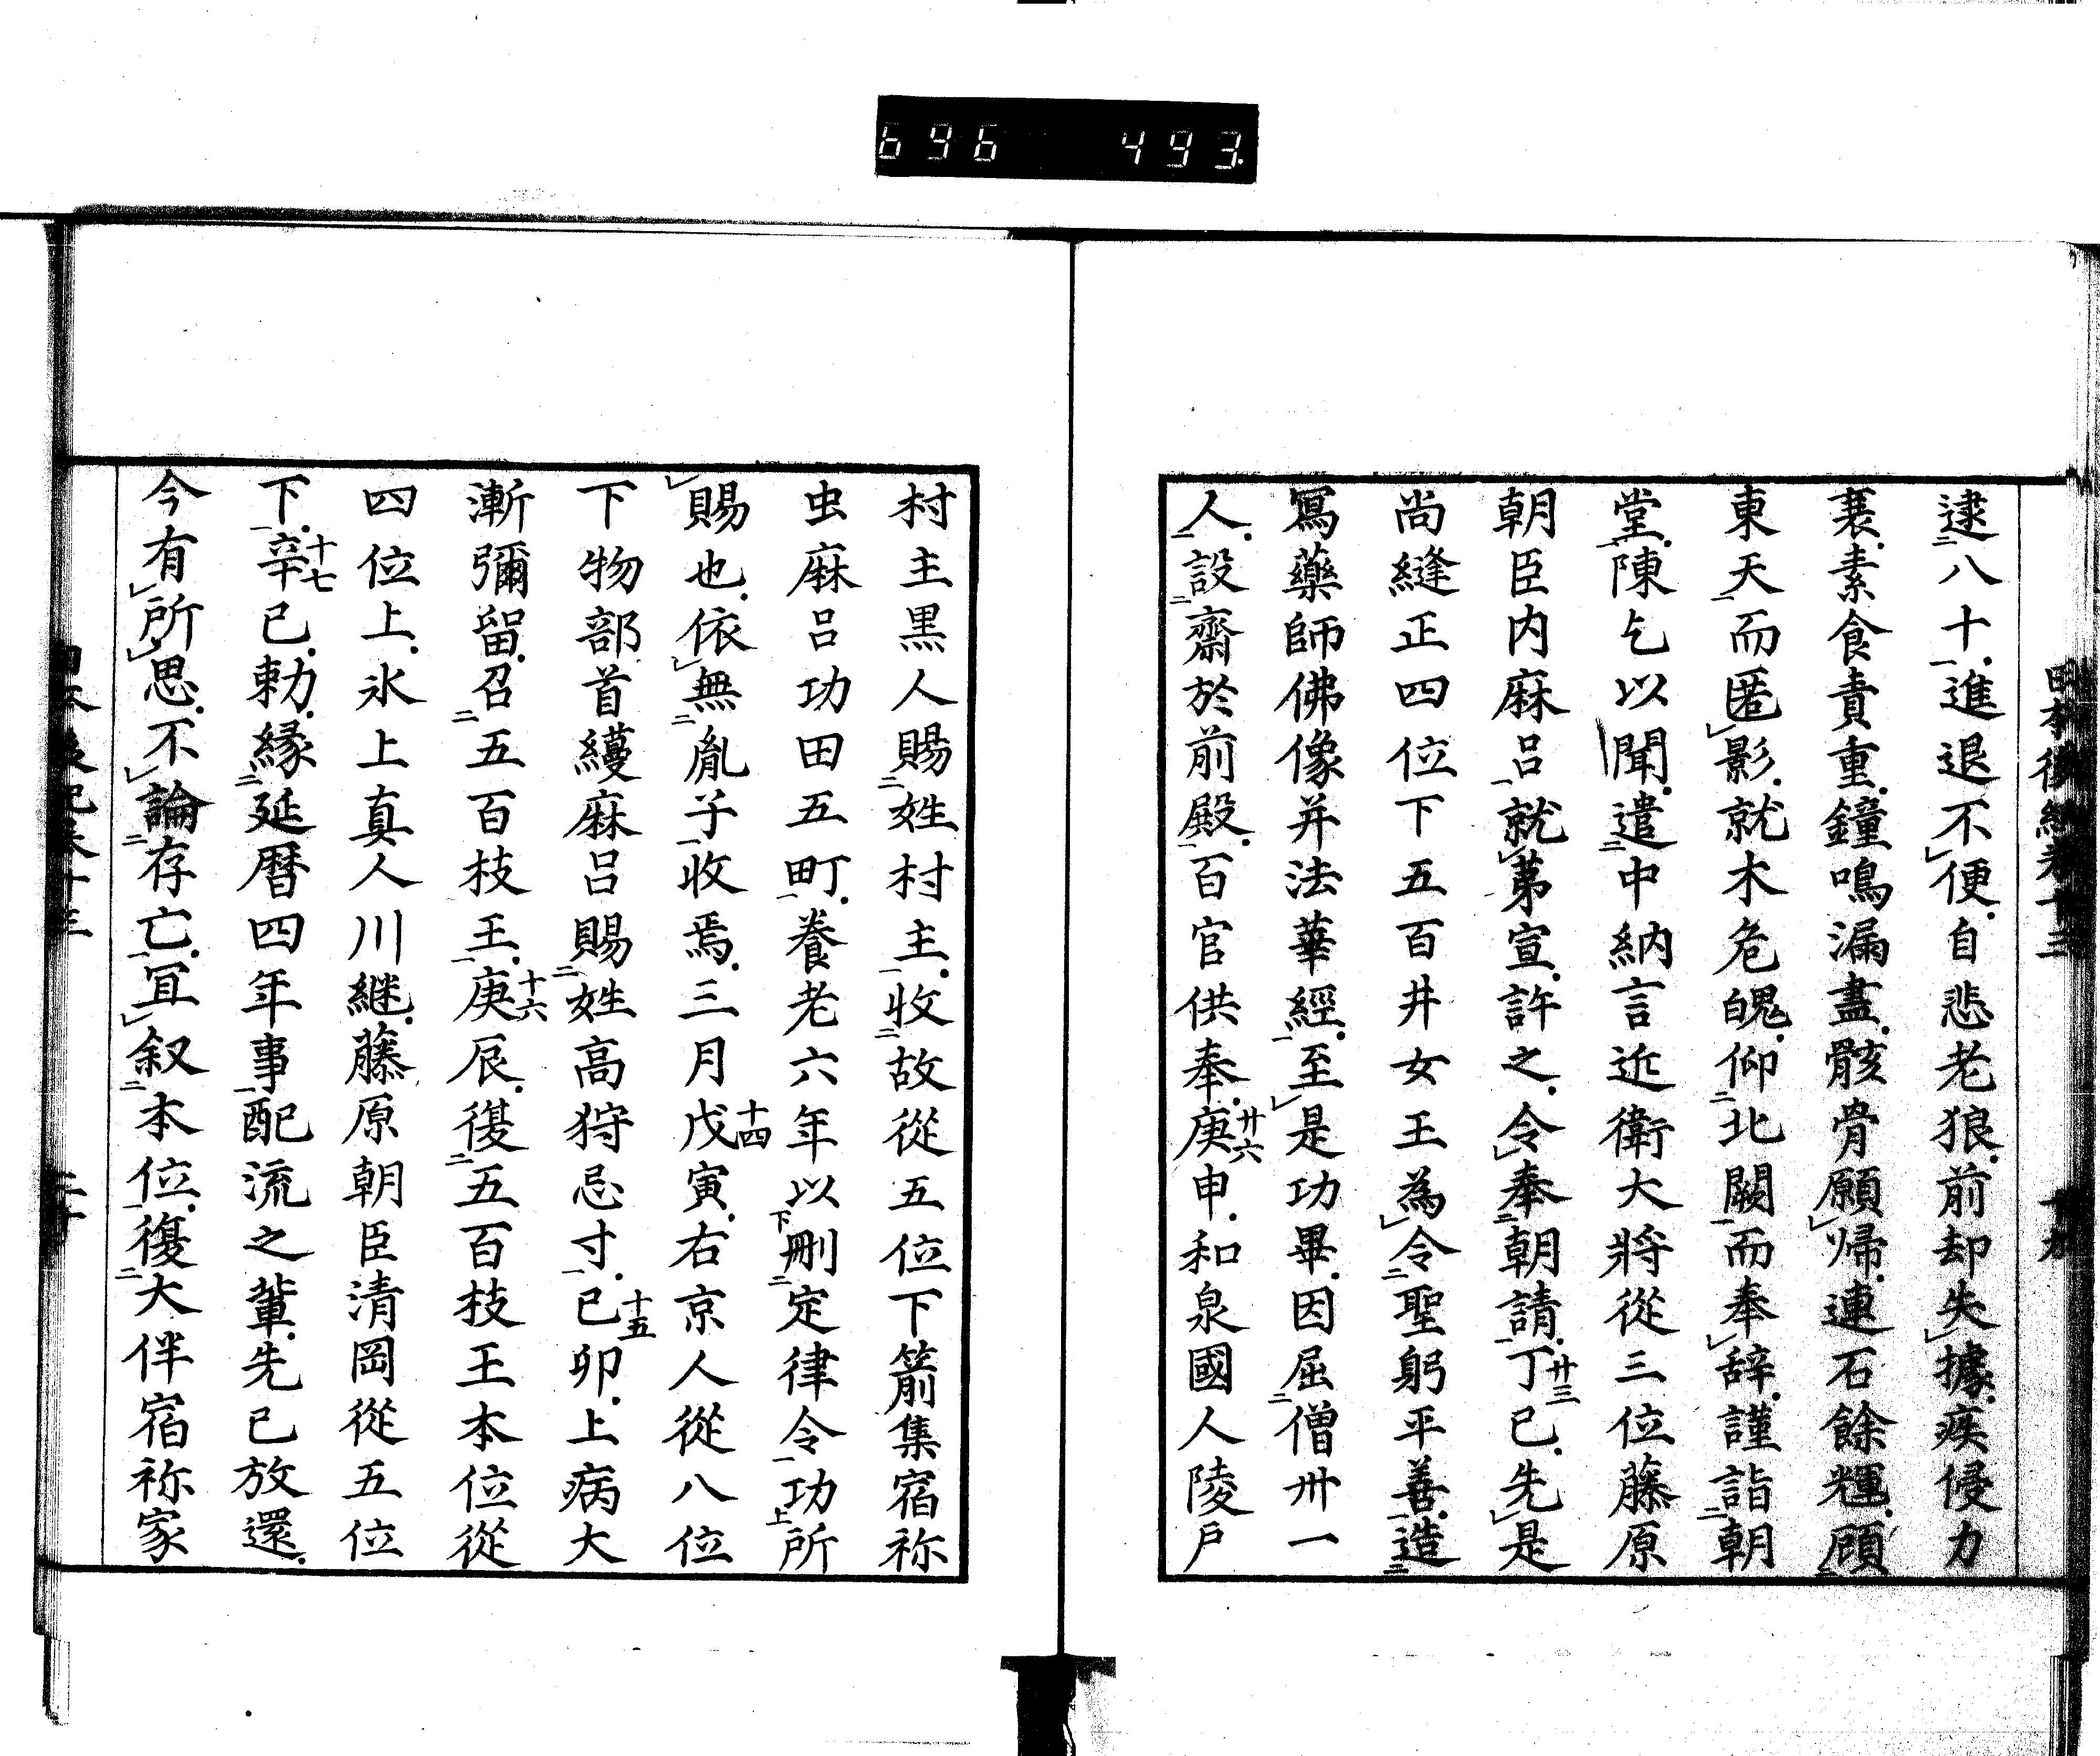 696 493
日本後紀卷十三 十九
逮二八十一進退不レ便自悲老狼前却失レ據疾侵力
衰素食責重鐘鳴漏盡骸骨願レ帰連石餘輝顧二
東天一而匿レ影就木危魄仰二北闕一而奉レ辞謹詣二朝
堂一陳乞以聞遣二中納言近衛大將從三位藤原
朝臣内麻呂一就レ苐宣許之令レ奉二朝請一丁巳廿三先レ是
尚縫正四位下五百井女王為レ令二聖躬平善一造二
寫藥師佛像并法華經一至レ是功畢因屈二僧卅一
人一設二齋於前殿一百官供奉庚申廿六和泉國人陵戶
村主黒人賜二姓村主一收二故從五位下箭集宿祢
虫麻呂功田五町一養老六年以下刪二定律令一功上所
レ賜也依レ無二胤子一收焉三月戊寅十四右京人從八位
下物部首蘰麻呂賜二姓高狩忌寸一己卯十五上病大
漸彌留召二五百枝王一庚辰十六復二五百枝王本位從
四位上氷上真人川継藤原朝臣清岡從五位
下一辛巳十七勅縁二延暦四年事一配流之輩先已放還
今有レ所レ思不レ論二存亡一冝レ叙二本位一復二大伴宿祢家
日本後紀卷十三 二十